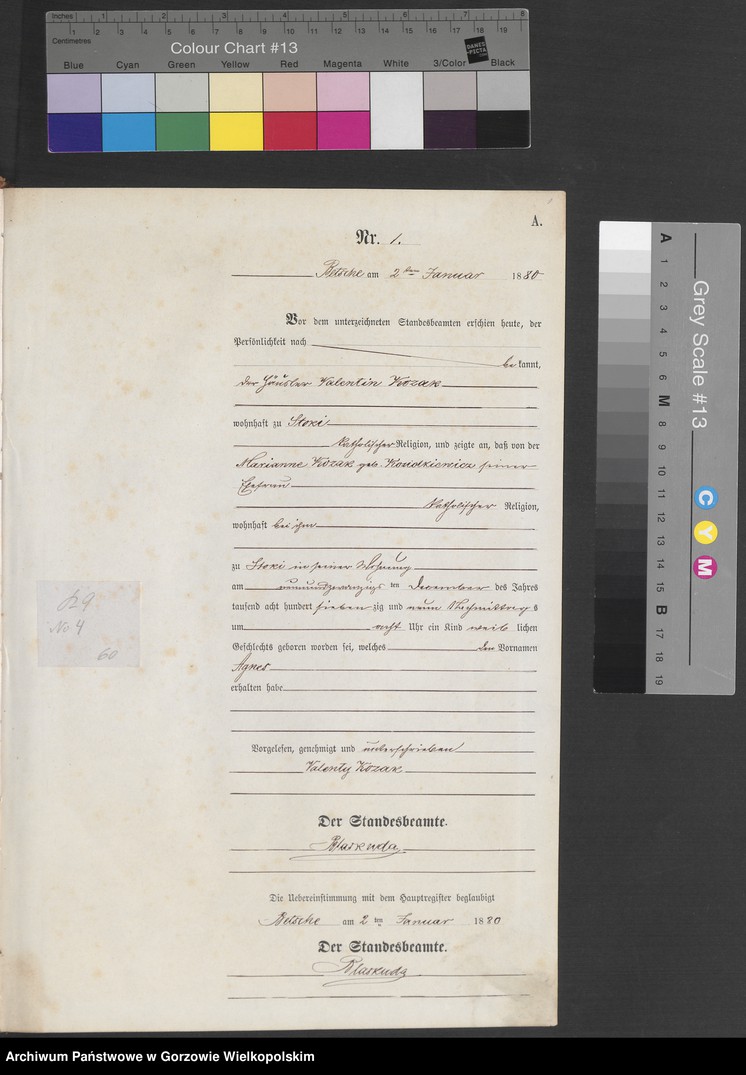 Inches 1 2 3 4 5 6 7 8
Centimetres 1 2 3 4 5 6 7 8 9 10 11 12 13 14 15 16 17 18 19
Colour Chart #13
DANES PICTA
Blue Cyan Green Yellow Red Magenta White 3/Color Black
A.
Nr. 1.
Betsche am 2ten Januar 1880
Vor dem unterzeichneten Standesbeamten erschien heute, der
Persönlichkeit nach
be kannt,
der Häusler Valentin Kozak
wohnhaft zu Stoki
katholischer Religion, und zeigte an, daß von der
Marianne Kozak geb. seiner
Ehefrau
katholischer Religion,
wohnhaft bei ihm
zu Stoki in seiner Wohnung
am neunundzwanzigsten December des Jahres
tausend acht hundert sieben zig und neun Nachmittag s
um acht Uhr ein Kind weib lichen
Geschlechts geboren worden sei, welches den Vornamen
Agnes
erhalten habe
Vorgelesen, genehmigt und unterschrieben
Valenty Kozak
Der Standesbeamte.
Blaskuda
Die Uebereinstimmung mit dem Hauptregister beglaubigt
Betsche am 2 ten Januar 1880
Der Standesbeamte.
Blaskuda
No 4
60
Grey Scale #13
A 1 2 3 4 5 6 M 8 9 10 11 12 13 14 15 B 17 18 19
C
Y
M
Archiwum Państwowe w Gorzowie Wielkopolskim